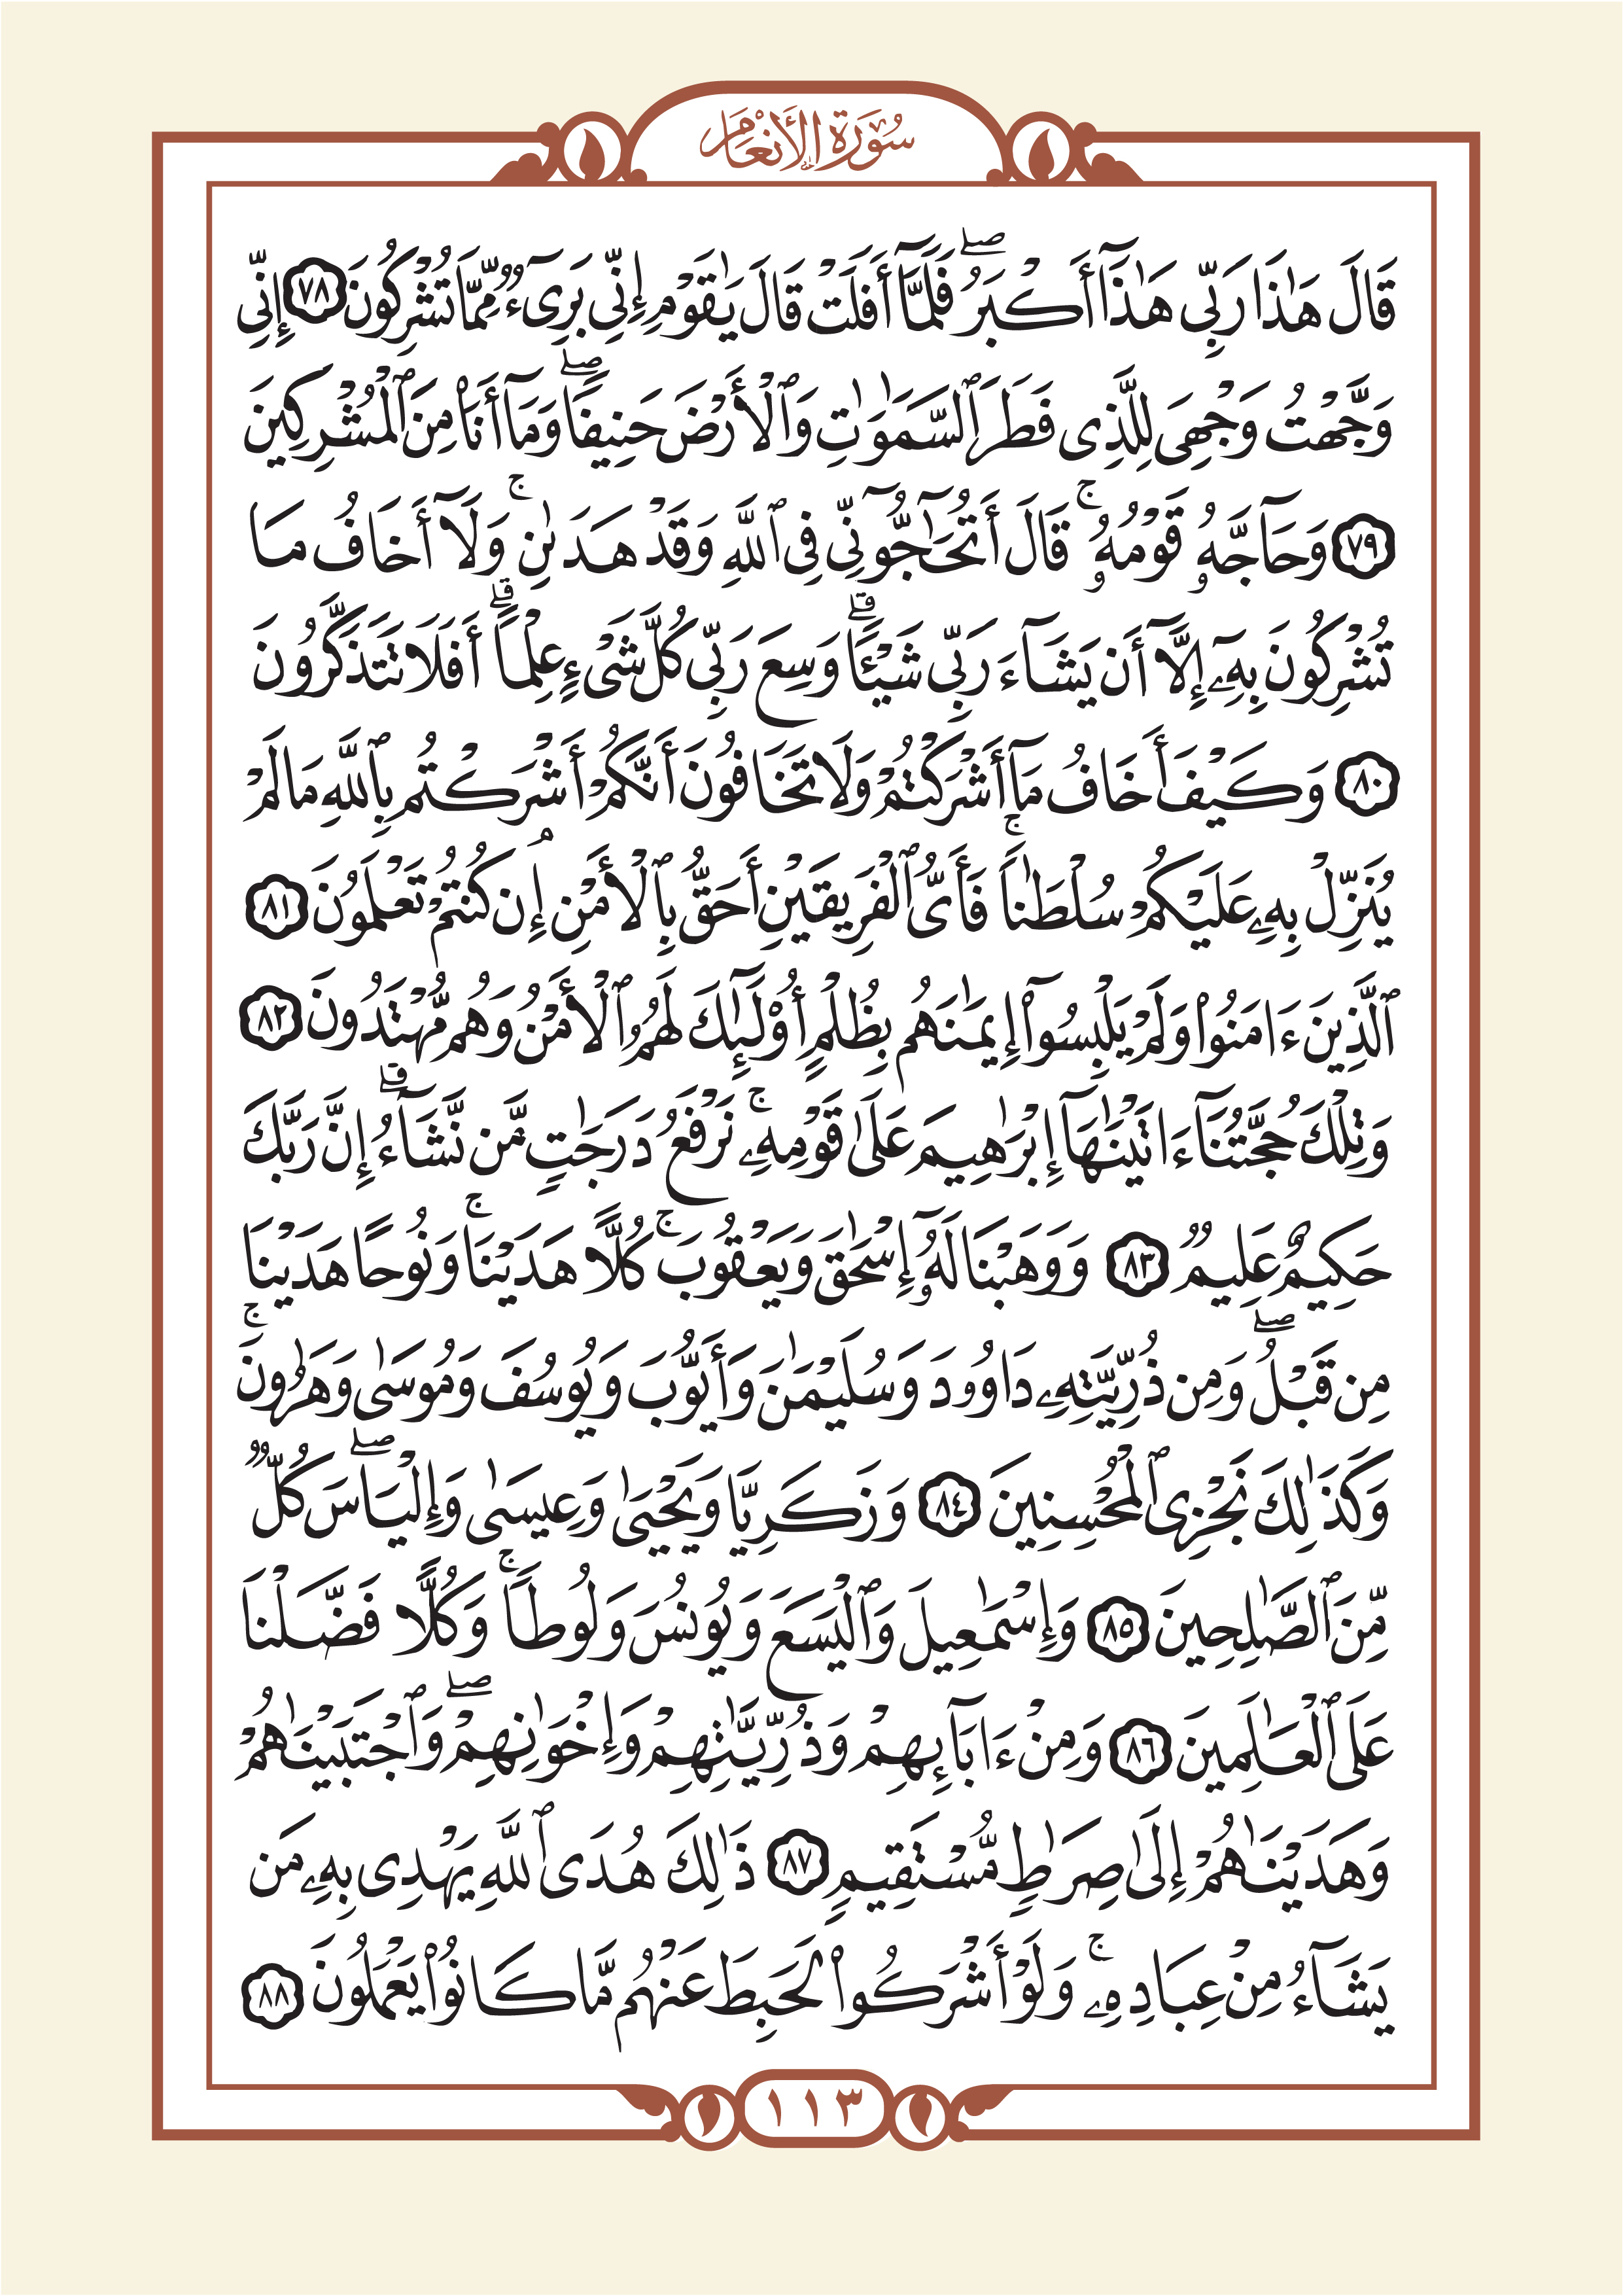 سُورَةُ الأَنْعَام
قَالَ هَٰذَا رَبِّى هَٰذَآ أَكْبَرُ ۖ فَلَمَّآ أَفَلَتْ قَالَ يَٰقَوْمِ إِنِّى بَرِىٓءٌ مِّمَّا تُشْرِكُونَ ٧٨ إِنِّى
وَجَّهْتُ وَجْهِىَ لِلَّذِى فَطَرَ ٱلسَّمَٰوَٰتِ وَٱلْأَرْضَ حَنِيفًا ۖ وَمَآ أَنَا۠ مِنَ ٱلْمُشْرِكِينَ
٧٩ وَحَآجَّهُۥ قَوْمُهُۥ ۚ قَالَ أَتُحَٰٓجُّوٓنِّى فِى ٱللَّهِ وَقَدْ هَدَىٰنِ ۚ وَلَآ أَخَافُ مَا
تُشْرِكُونَ بِهِۦٓ إِلَّآ أَن يَشَآءَ رَبِّى شَيْـًٔا ۗ وَسِعَ رَبِّى كُلَّ شَىْءٍ عِلْمًا ۗ أَفَلَا تَتَذَكَّرُونَ
٨٠ وَكَيْفَ أَخَافُ مَآ أَشْرَكْتُمْ وَلَا تَخَافُونَ أَنَّكُمْ أَشْرَكْتُم بِٱللَّهِ مَا لَمْ
يُنَزِّلْ بِهِۦ عَلَيْكُمْ سُلْطَٰنًا ۚ فَأَىُّ ٱلْفَرِيقَيْنِ أَحَقُّ بِٱلْأَمْنِ ۖ إِن كُنتُمْ تَعْلَمُونَ ٨١
ٱلَّذِينَ ءَامَنُوا۟ وَلَمْ يَلْبِسُوٓا۟ إِيمَٰنَهُم بِظُلْمٍ أُو۟لَٰٓئِكَ لَهُمُ ٱلْأَمْنُ وَهُم مُّهْتَدُونَ ٨٢
وَتِلْكَ حُجَّتُنَآ ءَاتَيْنَٰهَآ إِبْرَٰهِيمَ عَلَىٰ قَوْمِهِۦ ۚ نَرْفَعُ دَرَجَٰتٍ مَّن نَّشَآءُ ۗ إِنَّ رَبَّكَ
حَكِيمٌ عَلِيمٌ ٨٣ وَوَهَبْنَا لَهُۥٓ إِسْحَٰقَ وَيَعْقُوبَ ۚ كُلًّا هَدَيْنَا ۚ وَنُوحًا هَدَيْنَا
مِن قَبْلُ ۖ وَمِن ذُرِّيَّتِهِۦ دَاوُۥدَ وَسُلَيْمَٰنَ وَأَيُّوبَ وَيُوسُفَ وَمُوسَىٰ وَهَٰرُونَ ۚ
وَكَذَٰلِكَ نَجْزِى ٱلْمُحْسِنِينَ ٨٤ وَزَكَرِيَّا وَيَحْيَىٰ وَعِيسَىٰ وَإِلْيَاسَ ۖ كُلٌّ
مِّنَ ٱلصَّٰلِحِينَ ٨٥ وَإِسْمَٰعِيلَ وَٱلْيَسَعَ وَيُونُسَ وَلُوطًا ۚ وَكُلًّا فَضَّلْنَا
عَلَى ٱلْعَٰلَمِينَ ٨٦ وَمِنْ ءَابَآئِهِمْ وَذُرِّيَّٰتِهِمْ وَإِخْوَٰنِهِمْ ۖ وَٱجْتَبَيْنَٰهُمْ
وَهَدَيْنَٰهُمْ إِلَىٰ صِرَٰطٍ مُّسْتَقِيمٍ ٨٧ ذَٰلِكَ هُدَى ٱللَّهِ يَهْدِى بِهِۦ مَن
يَشَآءُ مِنْ عِبَادِهِۦ ۚ وَلَوْ أَشْرَكُوا۟ لَحَبِطَ عَنْهُم مَّا كَانُوا۟ يَعْمَلُونَ ٨٨
١١٣